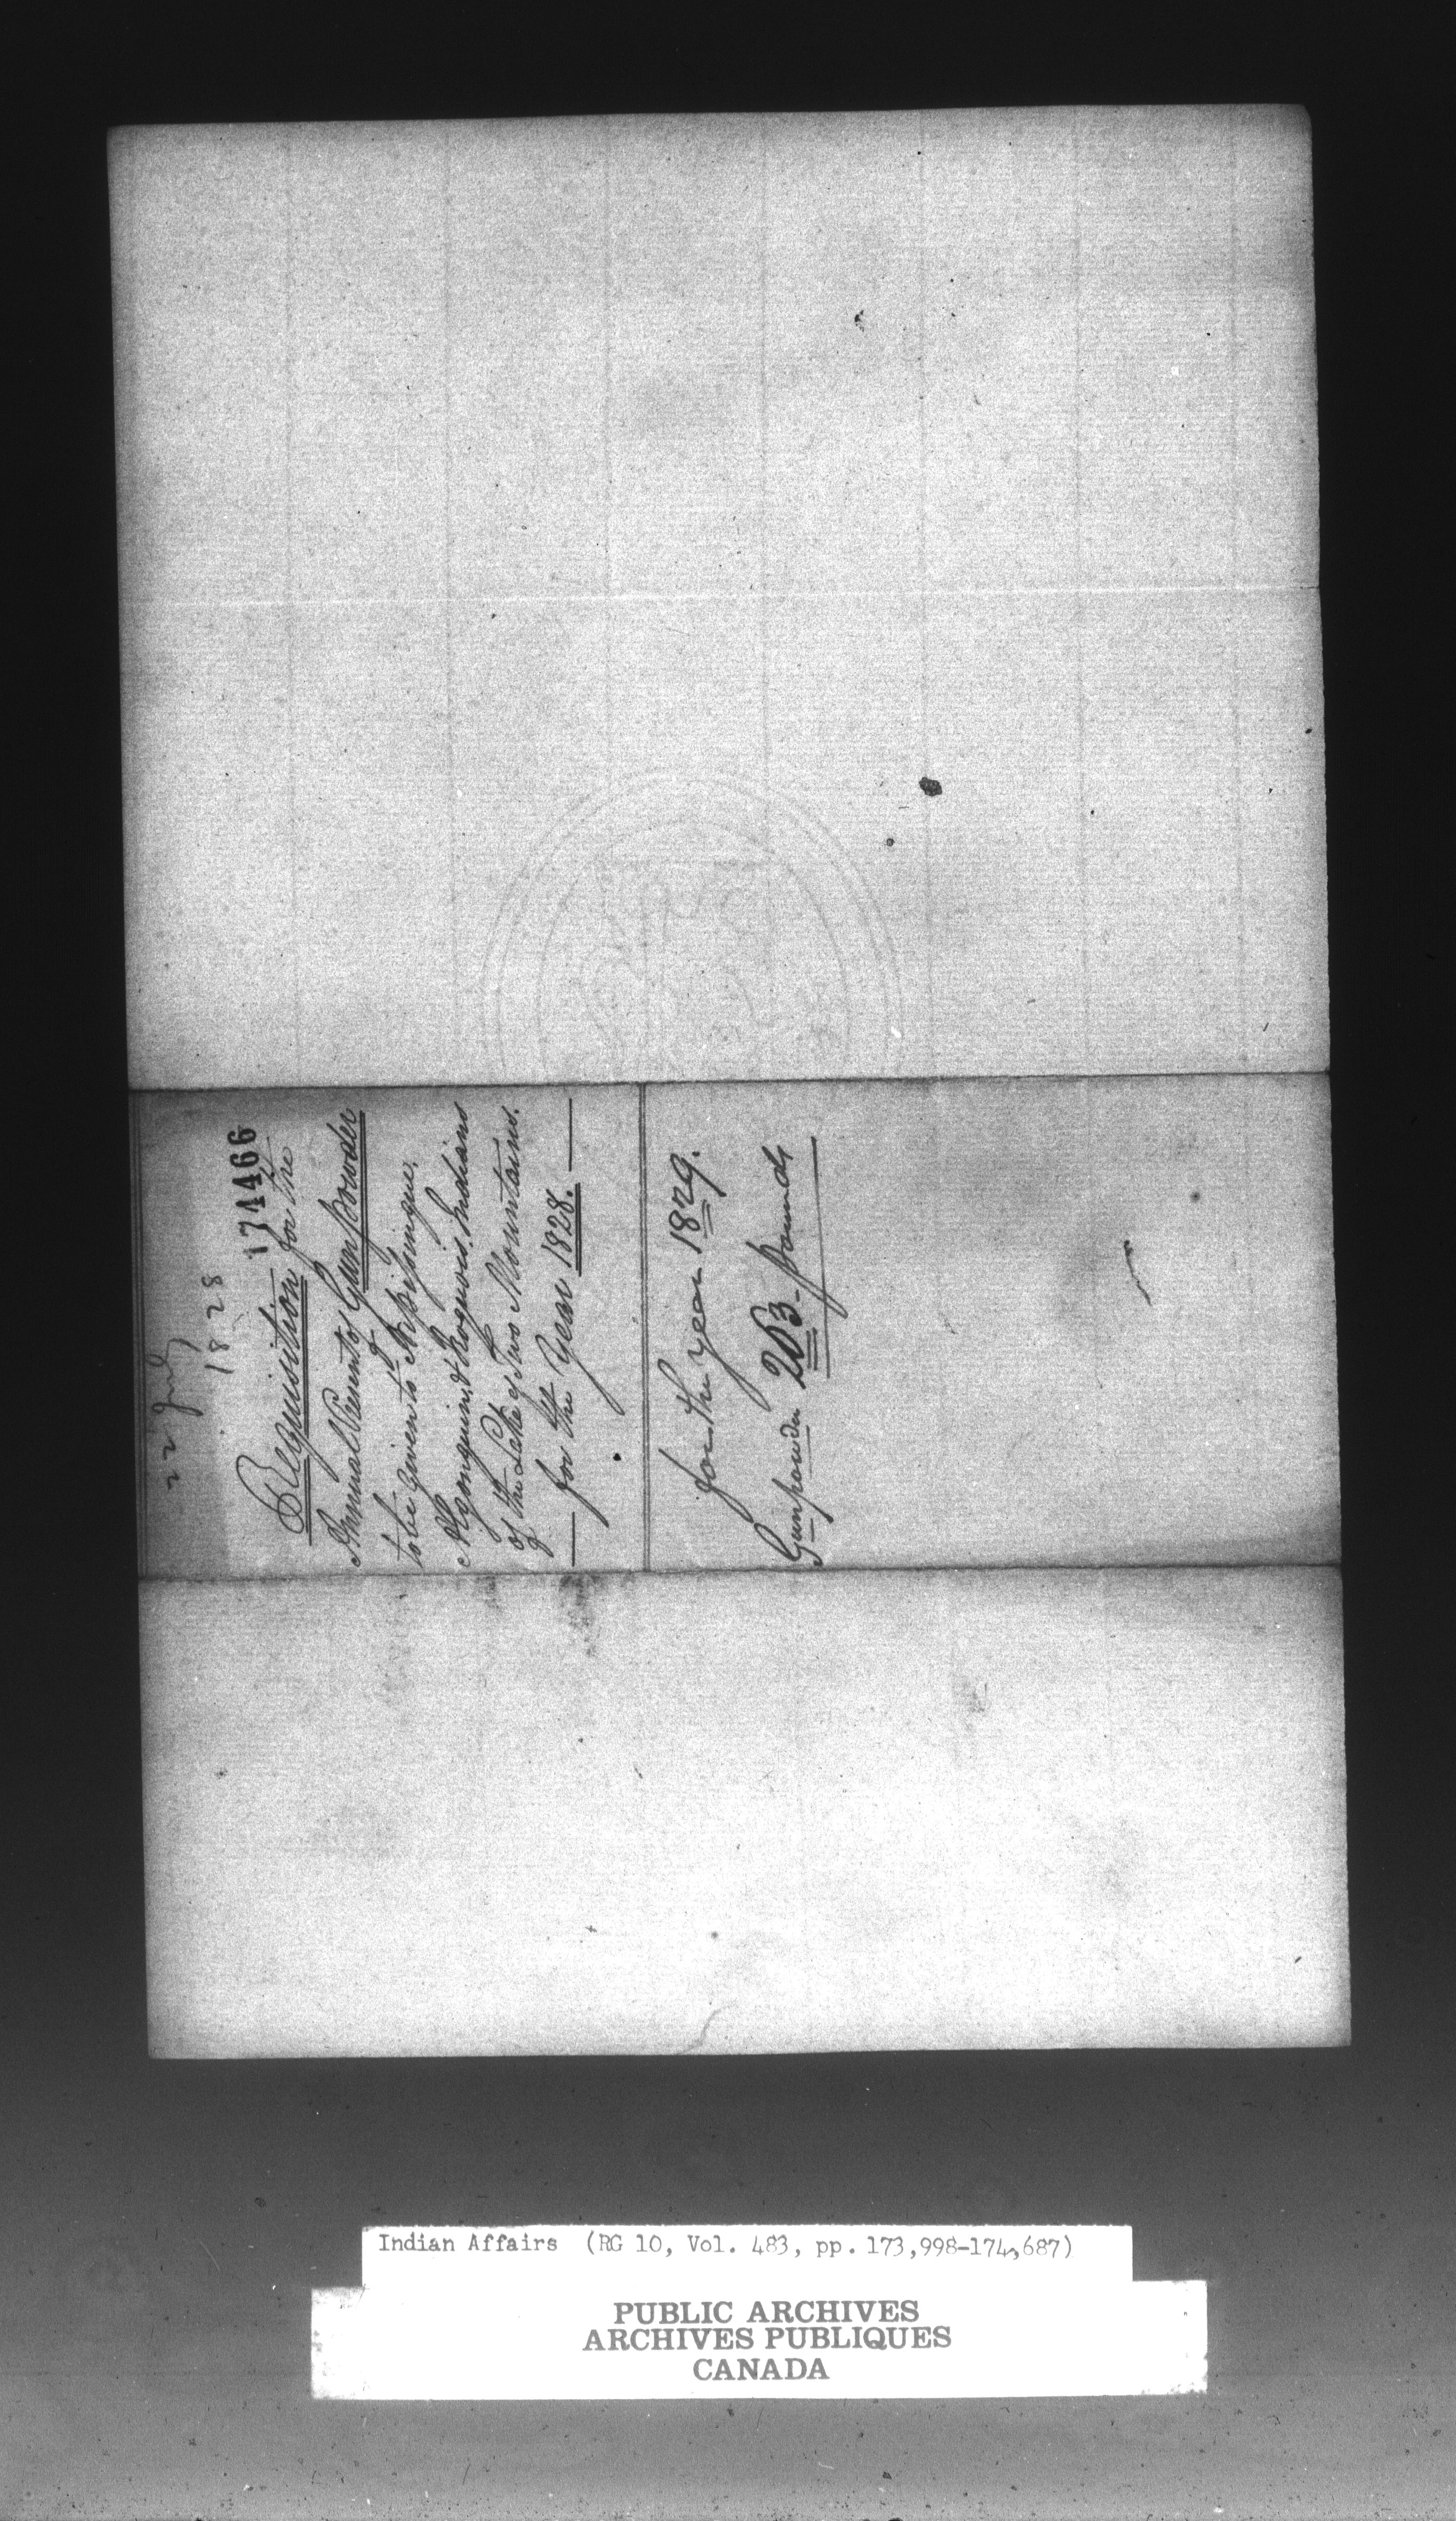 22 July
1828
174466
Requisition for the
Annual Present of Gunpowder
to be Given to Nipissingue,
Algonquin, & Iroquois, Indians
of the Lake of Two Mountains.
for the Year 1828.
for the year 1829.
Gunpowder 263 pounds
Indian Affairs (RG 10, Vol. 483, pp. 173,998-174,687)
PUBLIC ARCHIVES
ARCHIVES PUBLIQUES
CANADA